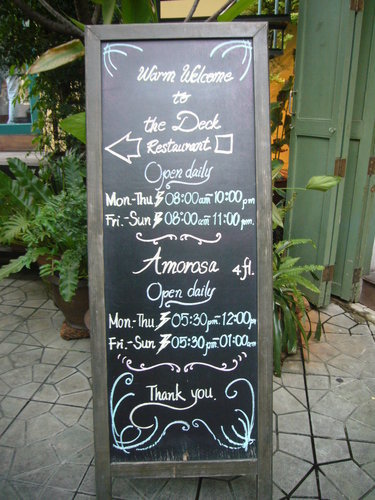 Warm Welcome
to
the Deck
Restaurant
Open daily
Mon-Thu 08:00am-10:00pm
Fri.-Sun 08:00am-11:00pm.
Amorosa 4fl.
Open daily
Mon-Thu 05:30pm-12:00pm
Fri.-Sun 05:30pm-01:00am
Thank you.